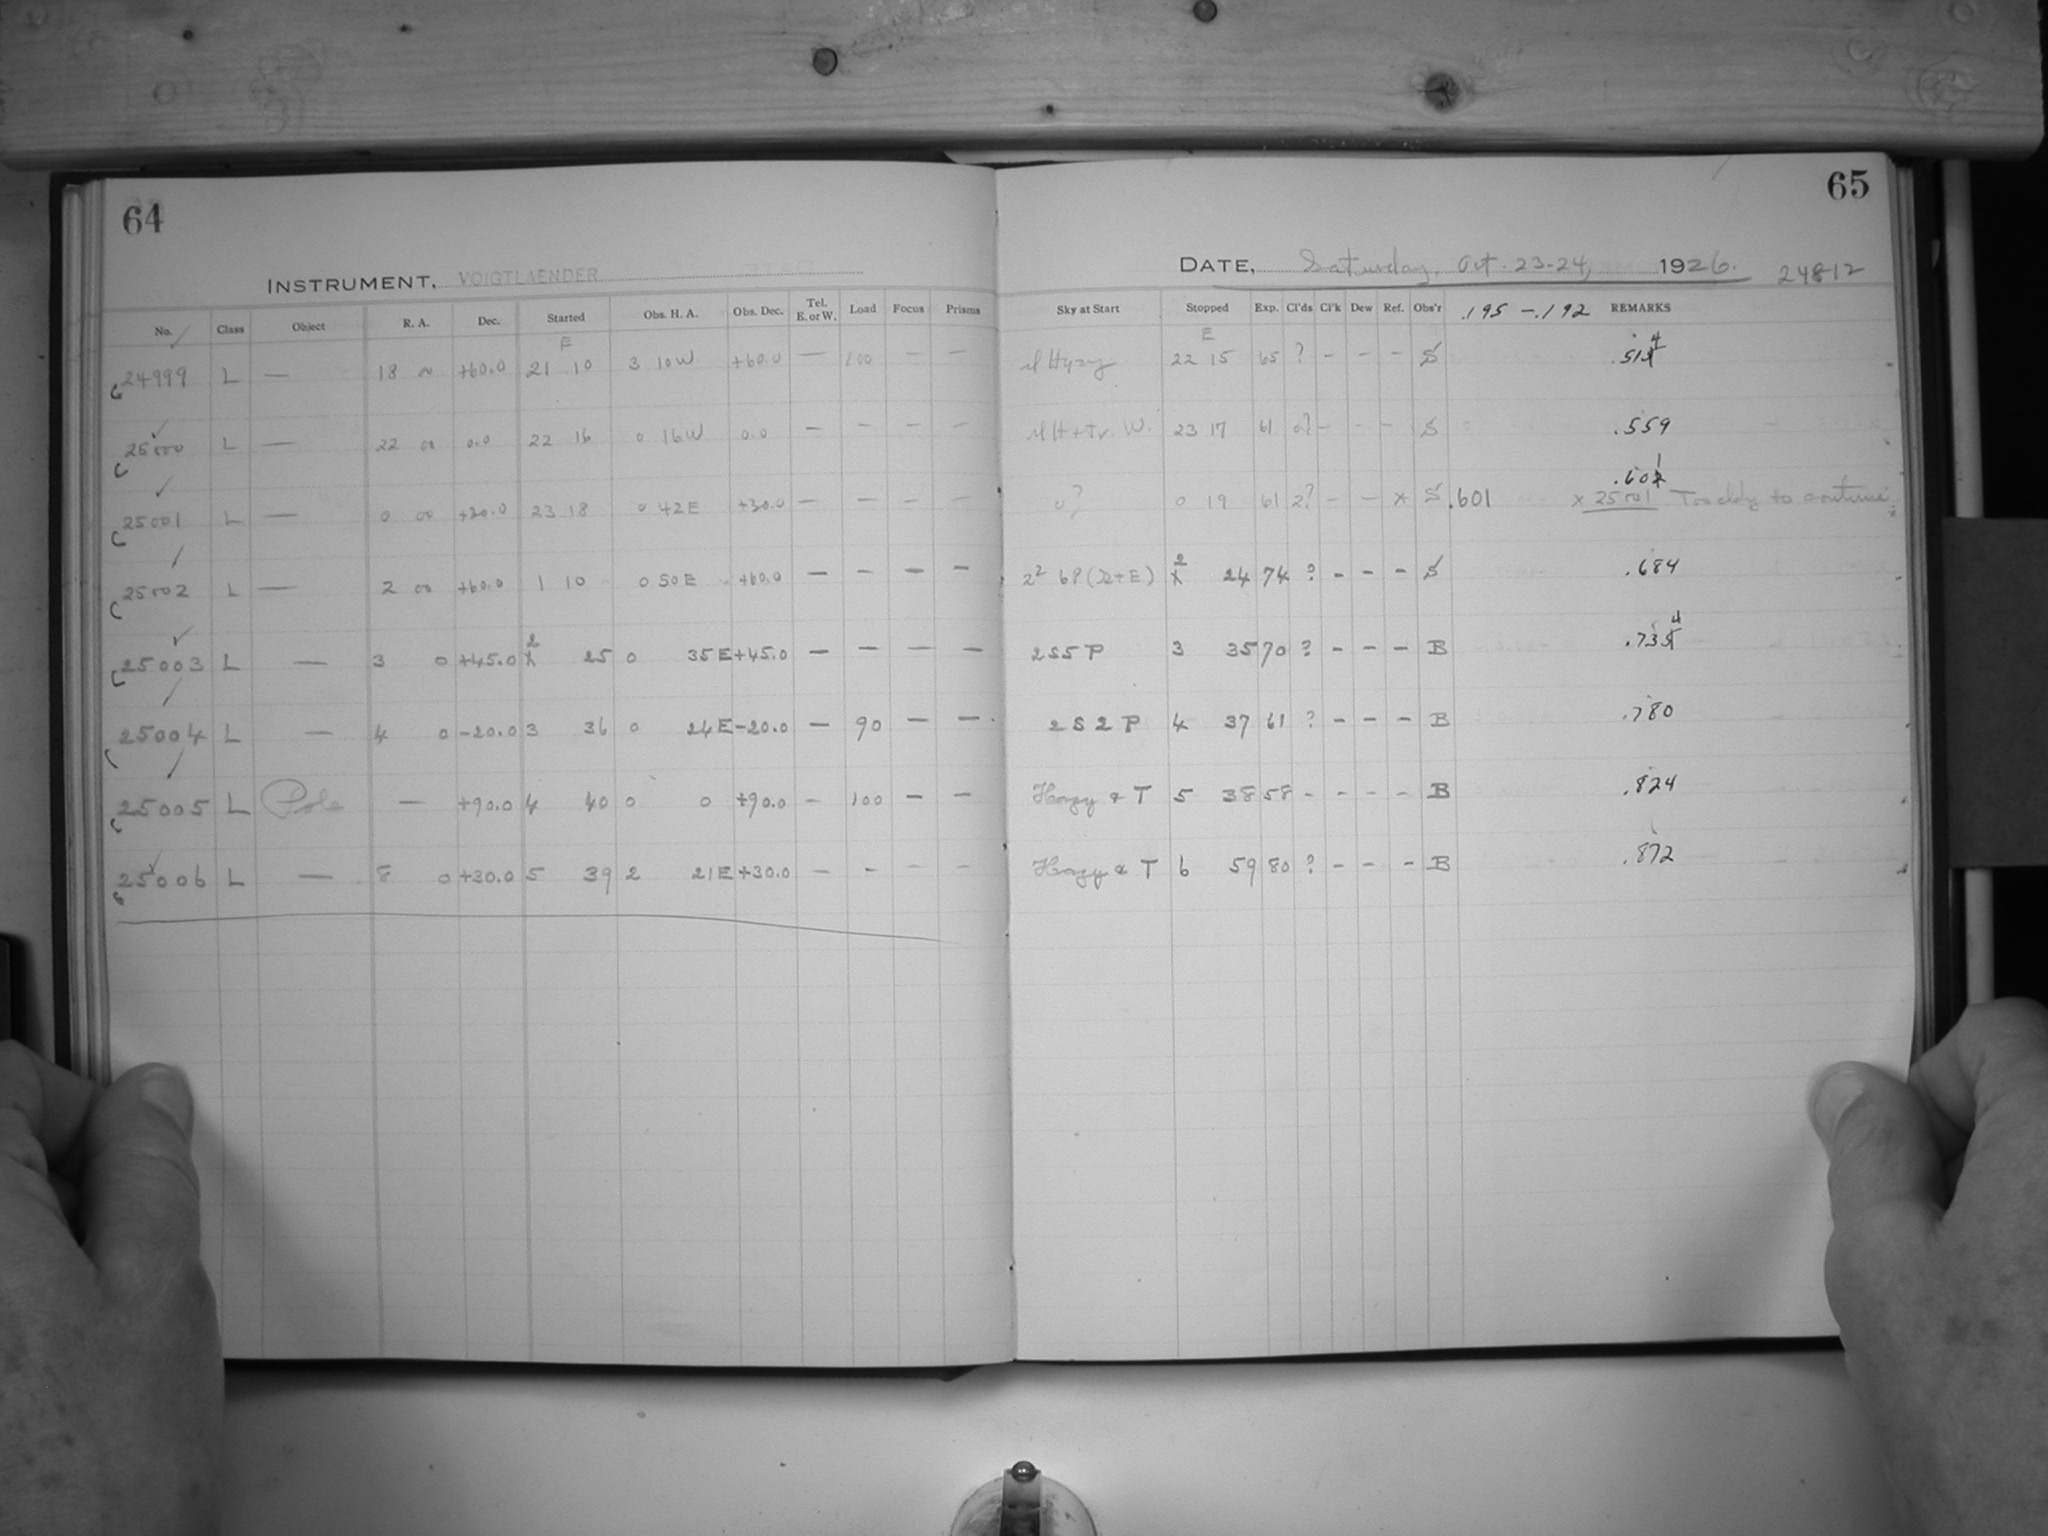 64
INSTRUMENT, VOIGTLAENDER
No. Class Object R. A. Dec. Started Obs. H. A. Obs. Dec. Tel. E. or W. Load Focus Prisms
E
24999 L — 18 00 +60.0 21 10 3 10W +60.0 — 100 — —
25000 L — 22 00 0.0 22 16 0 16W 0.0 — — — —
25001 L — 0 00 +30.0 23 18 0 42E +30.0 — — — —
25002 L — 2 00 +60.0 1 10 0 50E +60.0 — — — —
25003 L — 3 0 +45.0 2 25 0 35E +45.0 — — — —
25004 L — 4 0 -20.0 3 36 0 24E -20.0 — 90 — —
25005 L Pole — +90.0 4 40 0 0 +90.0 — 100 — —
25006 L — 8 0 +30.0 5 39 2 21E +30.0 — — — —
65
DATE, Saturday, Oct. 23-24, 1926. 24812
Sky at Start Stopped Exp. Cl'ds Cl'k Dew Ref. Obs'r .195 - .192 REMARKS
E
Hazy 22 15 65 ? - - - S .514
23 17 61 - - - S .559
0? 0 19 61 2? - - x S .601 .601 x 25001 Too cldy to continue
2² 6P (D+E) 2 24 74 ? - - - S .684
2S5P 3 35 70 ? - - - B .734
2S2P 4 37 61 ? - - - B .780
Hazy & T 5 38 58 - - - - B .824
Hazy & T 6 59 80 ? - - - B .872